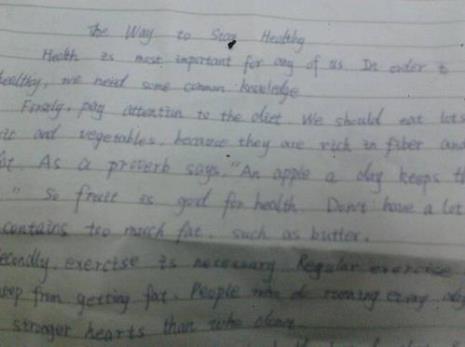 The Way to Stay Healthy
Health is most important for any of us In order to
healthy, we need some common knowledge
Firstly, pay attention to the diet We should eat lots
and vegetables, because they are rich in fiber and
As a proverb says, "An apple a day keeps th
" So fruit is good for health. Don't have a lot
contains too much fat, such as butter.
Secondly, exercise is necessary Regular exercise
from getting fat. People who do running every day
stronger hearts than who